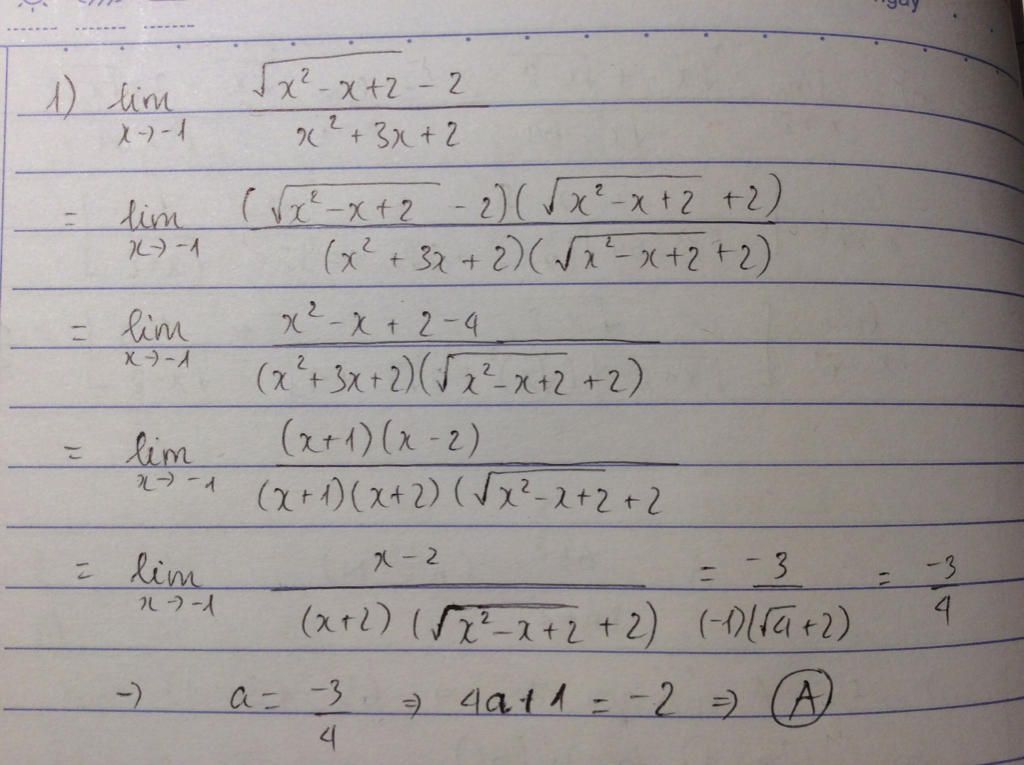 ngày
1) lim x→-1 (√(x² - x + 2) - 2) / (x² + 3x + 2)
= lim x→-1 ((√(x² - x + 2) - 2)(√(x² - x + 2) + 2)) / ((x² + 3x + 2)(√(x² - x + 2) + 2))
= lim x→-1 (x² - x + 2 - 4) / ((x² + 3x + 2)(√(x² - x + 2) + 2))
= lim x→-1 ((x+1)(x-2)) / ((x+1)(x+2)(√(x² - x + 2) + 2
= lim x→-1 (x-2) / ((x+2)(√(x² - x + 2) + 2)) = -3 / ((-1)(√4 + 2)) = -3/4
→ a = -3/4 ⇒ 4a + 1 = -2 ⇒ A